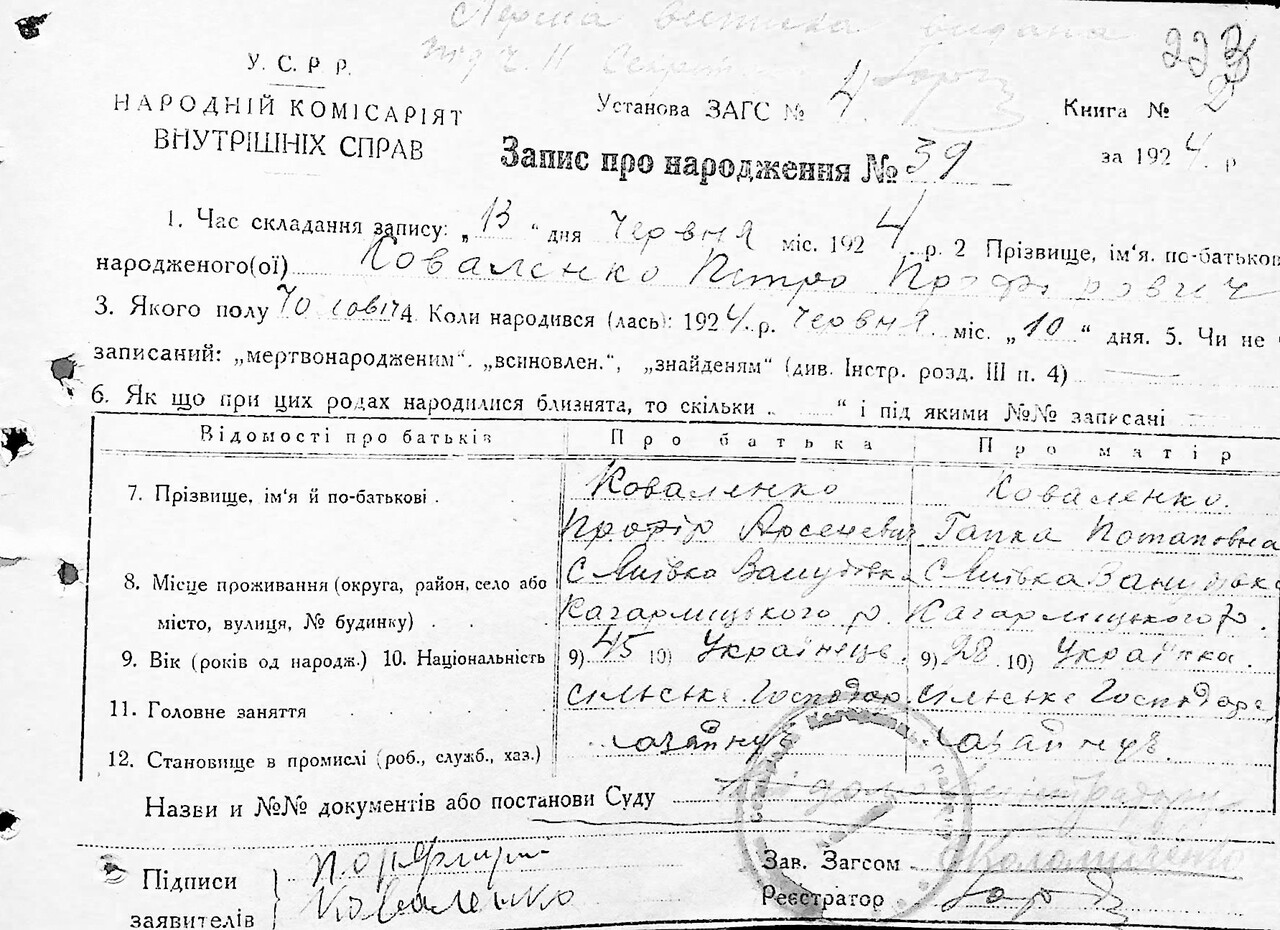 Перша виписка видана
223
У. С. Р. Р.
НАРОДНІЙ КОМІСАРІЯТ
ВНУТРІШНІХ СПРАВ
Установа ЗАГС № 4
Книга № 2
Запис про народження № 39
за 1924 р
1. Час складання запису: „13“ дня Червня міс. 1924 р. 2 Прізвище, ім'я. по-батькові
народженого(ої) Коваленко Петро Профірович
3. Якого полу Чоловіч 4. Коли народився (лась): 1924 р. Червня міс. „10“ дня. 5. Чи не
записаний: „мертвонародженим“. „всиновлен.“, „знайденям“ (див. Інстр. розд. III п. 4)
6. Як що при цих родах народилися близнята, то скільки „ “ і під якими №№ записані
Відомості про батьків Про батька Про матір
7. Прізвище, ім'я й по-батькові . Коваленко Коваленко.
Профір Арсеневич Гапка Потаповна
8. Місце проживання (округа, район, село або с Липівка с Липівка
місто, вулиця, № будинку) . . Кагарлицького р. Кагарлицького р.
9. Вік (років од народж.) 10. Національність 9) 45 10) Українець. 9) 28. 10) Українка.
11. Головне заняття сільське Господар. сільське Господарс
12. Становище в промислі (роб., служб., хаз.)
Назви и №№ документів або постанови Суду
Підписи
заявителів
Порфирій
Коваленко
Зав. Загсом Коломійченко
Реєстратор